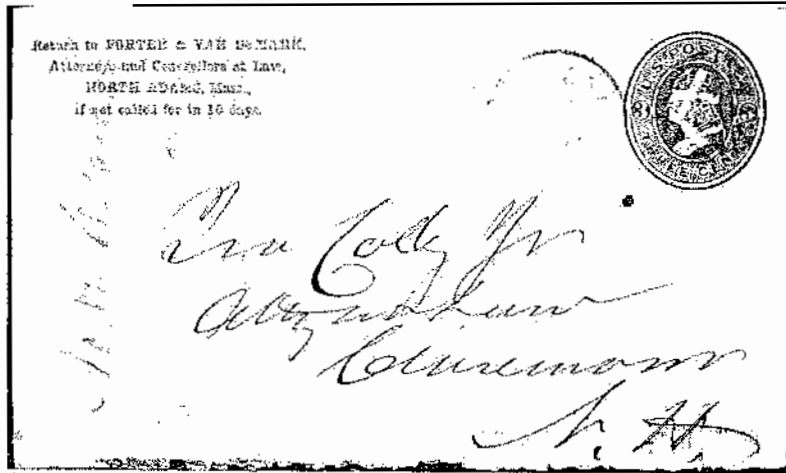 Return to PORTER & VAN DeMARK,
Attorneys and Counsellors at Law,
NORTH ADAMS, Mass.,
if not called for in 10 days.
U.S. POSTAGE
3 3
THREE CENTS
Ira Colby Jr
Atty at Law
Claremont
N. H.